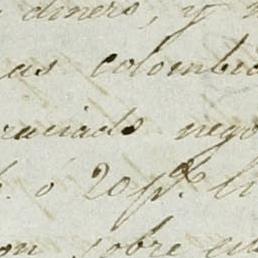 dinero, y
as colombia
raciado nego
. ó 20 p.s
on sobre